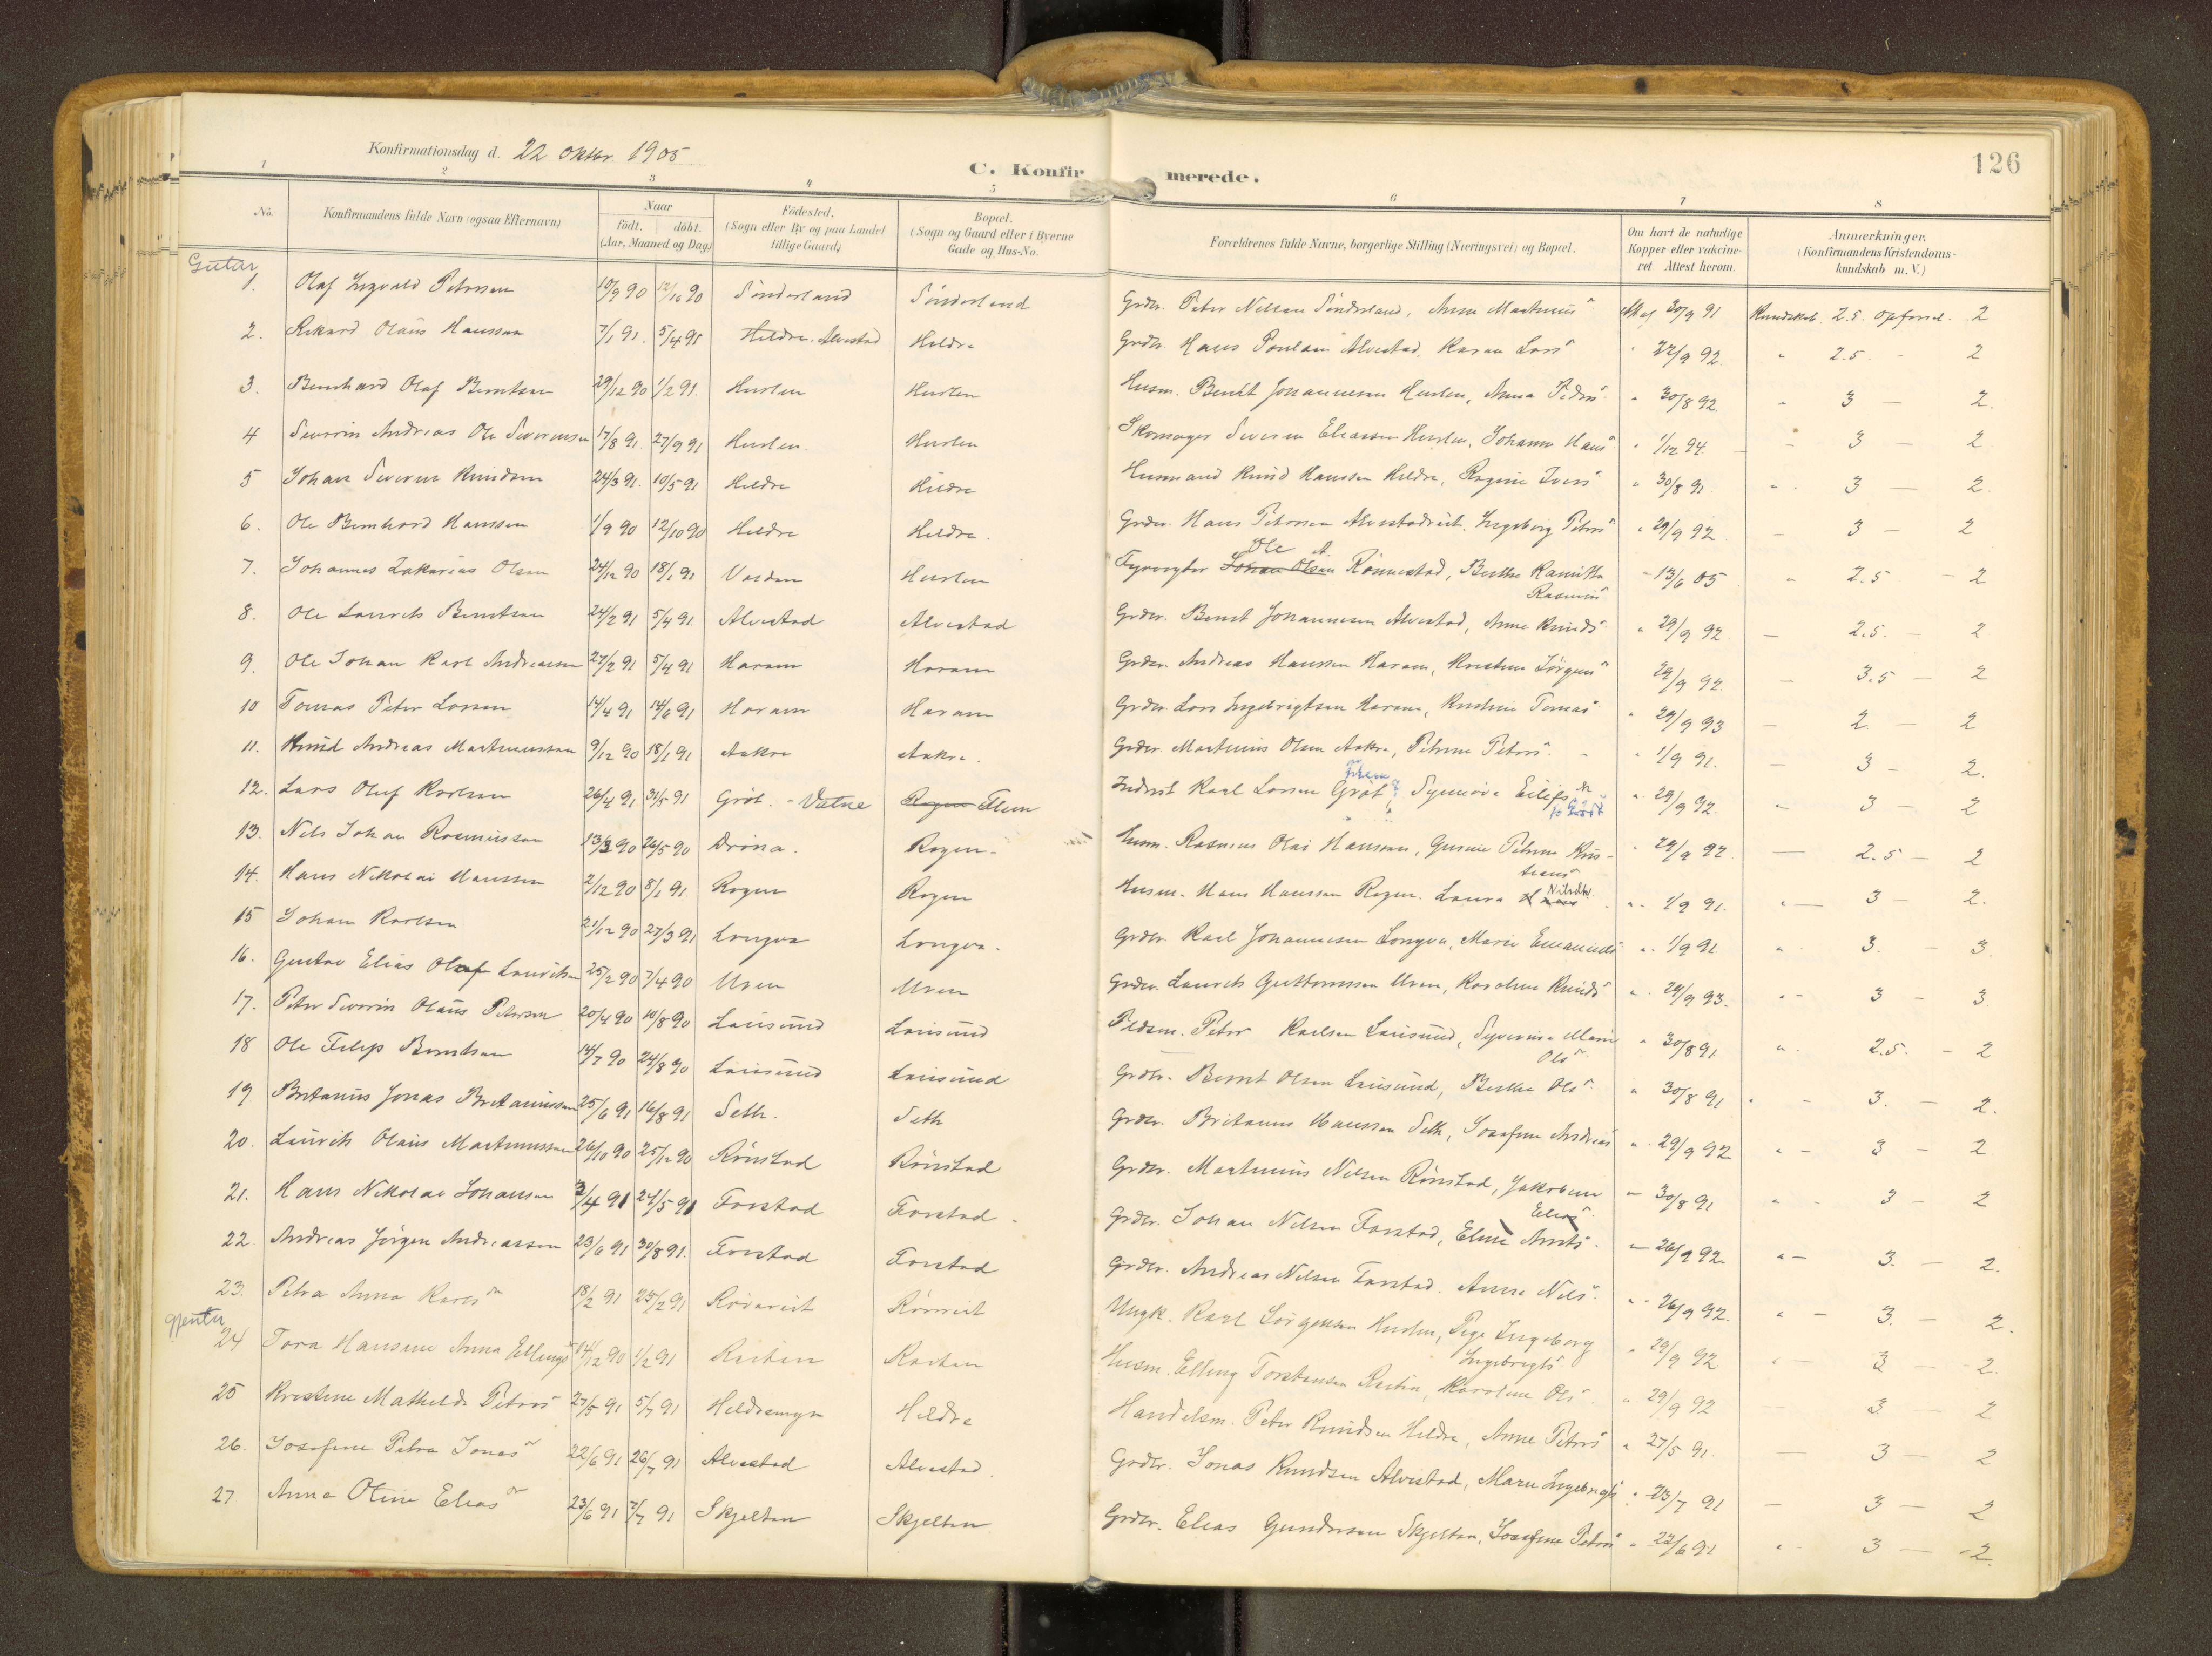 126
Konfirmationsdag d. 22 Oktbr. 1905
C. Konfirmerede.
1 2 3 4 5 6 7 8
No.
Konfirmandens fulde Navn (ogsaa Efternavn)
Naar
født. døbt.
(Aar, Maaned og Dag)
Födested.
(Sogn eller By og paa Landet
tillige Gaard)
Bopæl.
(Sogn og Gaard eller i Byerne
Gade og Hus-No.
Forældrenes fulde Navne, borgerlige Stilling (Næringsvei) og Bopæl.
Om havt de naturlige
Kopper eller vakcine-
ret Attest herom.
Anmærkninger.
(Konfirmandens Kristendoms-
kundskab m. V.)
Gutar
1. Olaf Ingvald Petersen 10/9 90 12/10 90 Sønderland Sønderland Grdbr. Peter Nilsen Sønderland, Anna Martinus 30/9 91 Kundskab 2.5. Opførsel. 2
2. Rikard Olaus Hanssen 7/1 91. 5/4 91 Hildre. Alvestad Hildre Grdbr. Hans Alvestad, Karen Lars 22/9 92. 2.5 - 2
3. Bernhard Olaf Berntsen 29/12 90 1/2 91. Hurlen Hurlen Husm. Berndt Johannesen Hurlen, Anna 30/8 92. 3 — 2.
4 Severin Andreas Ole Severinsen 17/8 91. 27/9 91 Hurlen Hurlen Skomager Severin Eliassen Hurlen, Johanna Hans 1/12 94. 3 — 2
5 Johan Severin Knudsen 24/3 91. 10/5 91 Hildre Hildre Husmand Knud Hanssen Hildre, Regine Ivers 30/8 91 3 — 2.
6. Ole Bernhard Hanssen 1/9 90 12/10 90 Hildre Hildre. Grdbr. Hans Petersen Alvestad, Ingeborg Peters 29/9 92 3 — 2
7. Johannes Zakarias Olsen 24/12 90 18/1 91 Hurlen Fyrvogter Johan Olsen Ole A. Rønnestad, Berthe Rasmus 13/6 05 2.5 - 2
8. Ole Laurits Berntsen 24/2 91 5/4 91 Alvestad Alvestad Grdbr. Bernt Johannesen Alvestad, Anne Knuds 29/9 92 2.5. — 2
9. Ole Johan Karl Andreassen 27/2 91 5/4 91 Haram Haram Grdbr. Andreas Hanssen Haram, Kristine Jørgens 29/9 92. 3.5 — 2
10 Tomas Peter Larsen 14/4 91 14/6 91 Haram Haram Grdbr. Lars Ingebrigtsen Haram, Kristine Tomas 29/9 93 2 — 2
11. Knud Andreas Martinussen 9/12 90 18/1 91 Aakre Aakre. Grdbr. Martinus Olsen Aakre, Petrine Peters. 1/9 91. 3 — 2.
12. Lars Oluf Karlsen 26/4 91 31/5 91 Grøt. - Vatne Rogne Flem Inderst Karl Larsen Grøt, Synnøve Eilifs 29/9 92. 3 — 2
13. Nils Johan Rasmussen 13/3 90 26/5 90 Drøna. Rogne. Husm. Rasmus Olai Hanssen, Petrine Kristians 29/9 92 2.5 — 2
14. Hans Nikolai Hanssen 2/12 90 8/1 91. Rogne Rogne Husm. Hans Hanssen Rogne. Laura Nilsdtr. 1/9 91. 3 — 2.
15 Johan Karlsen 21/12 90 27/3 91 Longva Longva. Grdbr. Karl Johannesen Longva, Marie Emanuels 1/9 91 3. — 3.
16. Gustav Elias Olaf Lauritsen 25/2 90 7/4 90 Uren Uren Grdbr. Laurits Guttormsen Uren, Karoline Knuds 29/9 93. 3 — 3
17. Peter Severin Olaus Petersen 20/4 90 10/8 90 Lausund Lausund Pldsm. Peter Karlsen Lausund, Syverine Marie Ols 30/8 91 2.5. — 2
18 Ole Filip Berntsen 14/7 90 24/8 90 Lausund Lausund Grdbr. Bernt Olsen Lausund, Berthe Ols 30/8 91 3. — 2.
19. Britanus Jonas Britanussen 25/6 91 16/8 91 Seth. Seth Grdbr. Britanus Hanssen Seth, Josefine Andreas 29/9 92 3 — 2
20. Laurits Olaus Martinussen 26/10 90 25/12 90 Rønstad Rønstad Grdbr. Martinus Nilsen Rønstad, Jakobine Elias 30/8 91 3 — 2
21. Hans Nikolai Johansen 3/4 91 24/5 91 Farstad Farstad. Grdbr. Johan Nilsen Farstad, Eline 26/9 92. 3. — 2.
22. Andreas Jørgen Andreassen 23/6 91 30/8 91. Farstad Farstad Grdbr. Andreas Nilsen Farstad. Anne Nils. 26/9 92. 3. — 2.
23. Petra Anna Karls 18/2 91 25/2 91 Ungk. Karl Jørgensen Hurlen, Pige Ingeborg Ingebrigts 29/9 92 3 — 2.
Gjentur
24 Tora Hansine Anna Ellings 14/12 90 1/2 91 Reiten Reiten Husm. Elling Torstensen Reiten, Karoline Ols 29/9 92 3 — 2
25 Kristine Mathilde Peters 27/5 91 5/7 91 Hildremyr Hildre Handelsm. Peter Knudsen Hildre, Anne Peters 27/5 91. 3 — 2
26. Josefine Petra Jonas 22/6 91 26/7 91 Alvestad Alvestad. Grdbr. Jonas Knudsen Alvestad, Marie Ingebrigts 23/7 91 3 — 2
27 Anna Oline Elias 23/6 91 7/7 91 Skjelten Skjelten Grdbr. Elias Gundersen Skjelten, Josefine Peters 22/6 91 3 — 2.